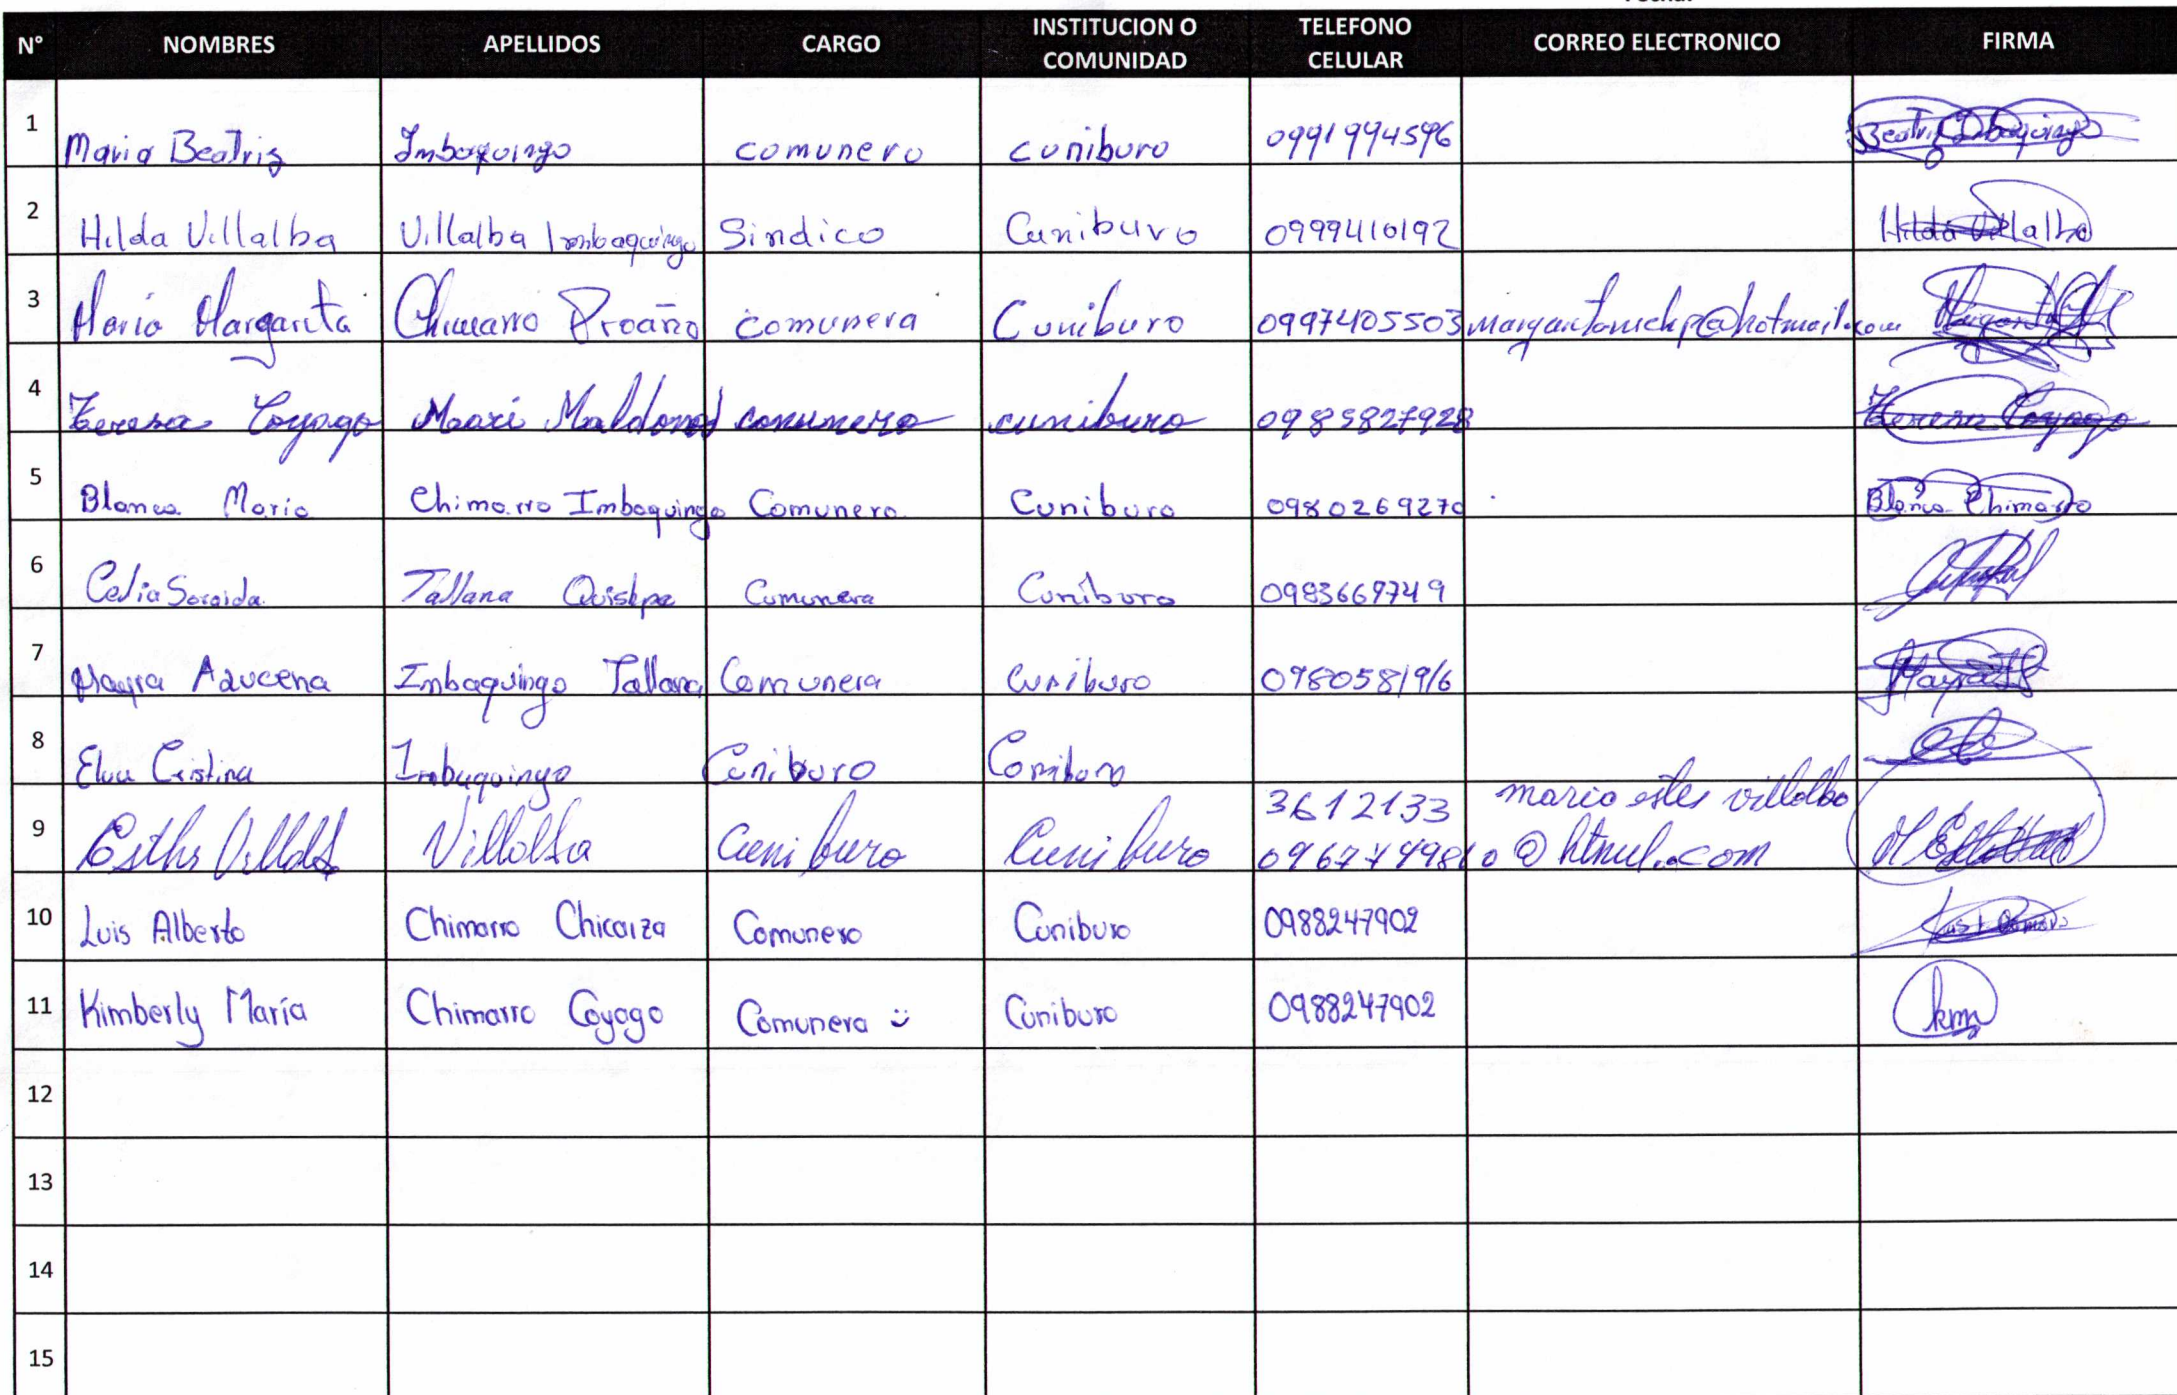 N° NOMBRES APELLIDOS CARGO INSTITUCION O COMUNIDAD TELEFONO CELULAR CORREO ELECTRONICO FIRMA
1 Maria Beatriz Imbaquingo comunero cuniburo 0991994596 Beatriz Imbaquingo
2 Hilda Villalba Villalba Imbaquingo Sindico Cuniburo 0999410192 Hilda Villalba
3 María Margarita Chimarro Proaño comunera Cuniburo 0997405503
4 Teresa Coyago comunero cuniburo 0985827928 Teresa Coyago
5 Blanca Maria Chimarro Imbaquingo Comunera Cuniburo 0980269270 Blanca Chimarro
6 Celia Soraida Tallana Quishpe Comunera Cuniburo 0983669749
7 Mayra Azucena Imbaquingo Tallana Comunera Cuniburo 0980581916
8 Elva Cristina Imbaquingo Cuniburo Coniburo
9 Villalba Cuniburo Cuniburo 3612133
10 Luis Alberto Chimarro Chicaiza Comunero Cuniburo 0988247902
11 Kimberly María Chimarro Coyago Comunera Cuniburo 0988247902 kim
12
13
14
15